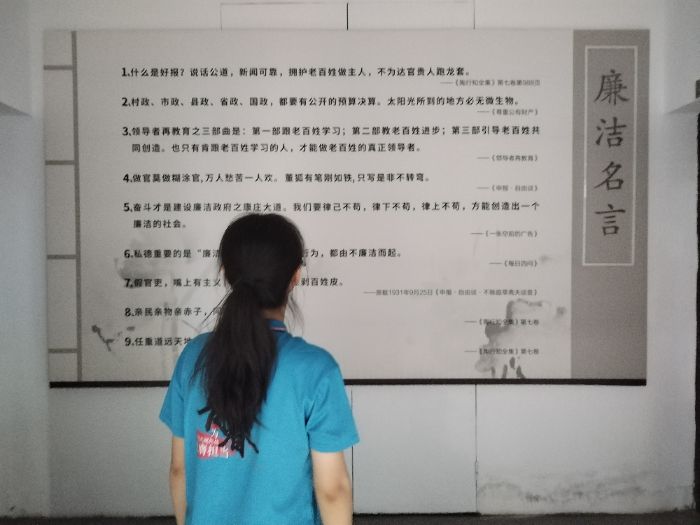 廉洁名言
1.什么是好报?说话公道,新闻可靠,拥护老百姓做主人,不为达官贵人跑龙套。
——《陶行知全集》第七卷第988页
2.村政、市政、县政、省政、国政,都要有公开的预算决算。太阳光所到的地方必无微生物。
——《尊重公有财产》
3.领导者再教育之三部曲是:第一部跟老百姓学习;第二部教老百姓进步;第三部引导老百姓共
同创造。也只有肯跟老百姓学习的人,才能做老百姓的真正领导者。
——《领导者再教育》
4.做官莫做糊涂官,万人愁苦一人欢。董狐有笔刚如铁,只写是非不转弯。
——《申报·自由谈》
5.奋斗才是建设廉洁政府之康庄大道。我们要律己不苟,律下不苟,律上不苟,方能创造出一个
廉洁的社会。
——《一张空前的广告》
6.私德重要的是“廉洁
为,都由不廉洁而起。
——《每日四问》
7.假官吏,嘴上有主义
剥百姓皮。
——原载1931年9月25日《申报·自由谈·不除庭草斋夫谈荟》
8.亲民亲物亲赤子,
——《陶行知全集》第七卷
9.任重道远天地
——《陶行知全集》第七卷
为
担当